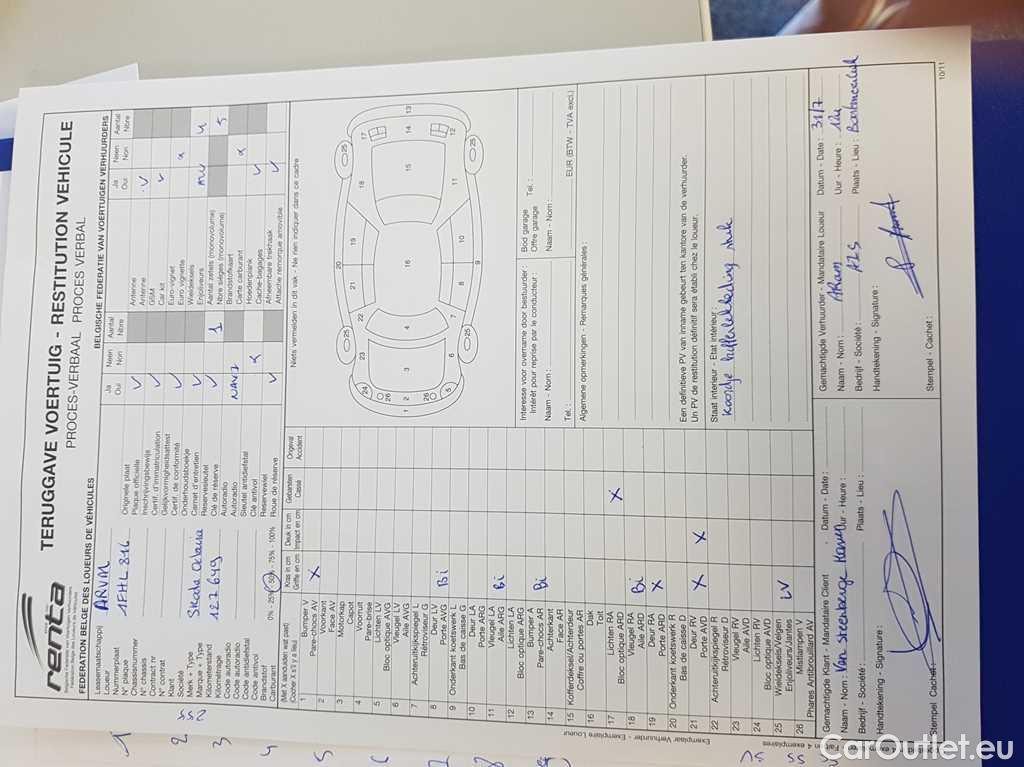 renta
TERUGGAVE VOERTUIG - RESTITUTION VEHICULE
PROCES-VERBAAL PROCES VERBAL
FEDERATION BELGE DES LOUEURS DE VÉHICULES
BELGISCHE FEDERATIE VAN VOERTUIGEN VERHUURDERS
Leasemaatschappij
Loueur
ARVAL
Nummerplaat
N° plaque
1FHL 816
Chassisnummer
N° chassis
Contract nr
N° contrat
Klant
Société
Merk + Type
Marque + Type
Skoda Octavia
Kilometerstand
Kilométrage
127649
Code autoradio
Code autoradio
Code antidiefstal
Code antivol
Brandstof
Carburant
0% - 25% - 50% - 75% - 100%
Ja Neen Aantal
Oui Non Nbre
Originele plaat
Plaque officielle
Inschrijvingsbewijs
Certif. d'immatriculation
Gelijkvormigheidsattest
Certif. de conformité
Onderhoudsboekje
Carnet d'entretien
Reservesleutel
Clé de réserve
1
Autoradio
Autoradio
NAVI
Sleutel antidiefstal
Clé antivol
Reservewiel
Roue de réserve
Ja Neen Aantal
Oui Non Nbre
Antenne
Antenne
GSM
Car kit
Euro-vignet
Euro vignette
Wieldeksels
Enjoliveurs
4
Aantal zetels (monovolume)
Nbre sièges (monovolume)
5
Brandstofkaart
Carte carburant
Hoedenplank
Cache-bagages
Afneembare trekhaak
Attache remorque amovible
(Met X aanduiden wat past)
(Cocher X s'il y a lieu)
Kras in cm
Griffe en cm
Deuk in cm
Impact en cm
Gebarsten
Cassé
Ongeval
Accident
1 Bumper V
Pare-chocs AV
X
2 Voorkant
Face AV
3 Motorkap
Capot
4 Voorruit
Pare-brise
5 Lichten LV
Bloc optique AVG
6 Vleugel LV
Aile AVG
7 Achteruitkijkspiegel L
Rétroviseur G
8 Deur LV
Porte AVG
Bi
9 Onderkant koetswerk L
Bas de caisse G
10 Deur LA
Porte ARG
11 Vleugel LA
Aile ARG
Bi
12 Lichten LA
Bloc optique ARG
13 Bumper A
Pare-chocs AR
Bi
14 Achterkant
Face AR
15 Kofferdeksel/Achterdeur
Coffre ou portes AR
16 Dak
Toit
17 Lichten RA
Bloc optique ARD
X
18 Vleugel RA
Aile ARD
Bi
19 Deur RA
Porte ARD
X
20 Onderkant koetswerk R
Bas de caisse D
21 Deur RV
Porte AVD
X X
22 Achteruitkijkspiegel R
Rétroviseur D
23 Vleugel RV
Aile AVD
24 Lichten RV
Bloc optique AVD
25 Wieldeksels/Velgen
Enjoliveurs/Jantes
LV
26 Mistlampen AV
Phares Antibrouillard AV
Niets vermelden in dit vak - Ne rien indiquer dans ce cadre
Interesse voor overname door bestuurder
Intérêt pour reprise par le conducteur :
Naam - Nom :
Tel. :
Bod garage
Offre garage
Tel. :
Naam - Nom :
EUR (BTW - TVA excl.)
Algemene opmerkingen - Remarques générales :
Een definitieve PV van inname gebeurt ten kantore van de verhuurder.
Un PV de restitution définitif sera établi chez le loueur.
Staat interieur - Etat intérieur :
Gemachtigde Klant - Mandataire Client
Datum - Date :
Naam - Nom :
Uur - Heure :
Bedrijf - Société :
Plaats - Lieu :
Handtekening - Signature :
Stempel - Cachet :
Gemachtigde Verhuurder - Mandataire Loueur
Datum - Date : 31/7
Naam - Nom :
Uur - Heure :
Bedrijf - Société :
Plaats - Lieu :
Handtekening - Signature :
Stempel - Cachet :
Exemplaar Verhuurder - Exemplaire Loueur
10/11
CarOutlet.eu